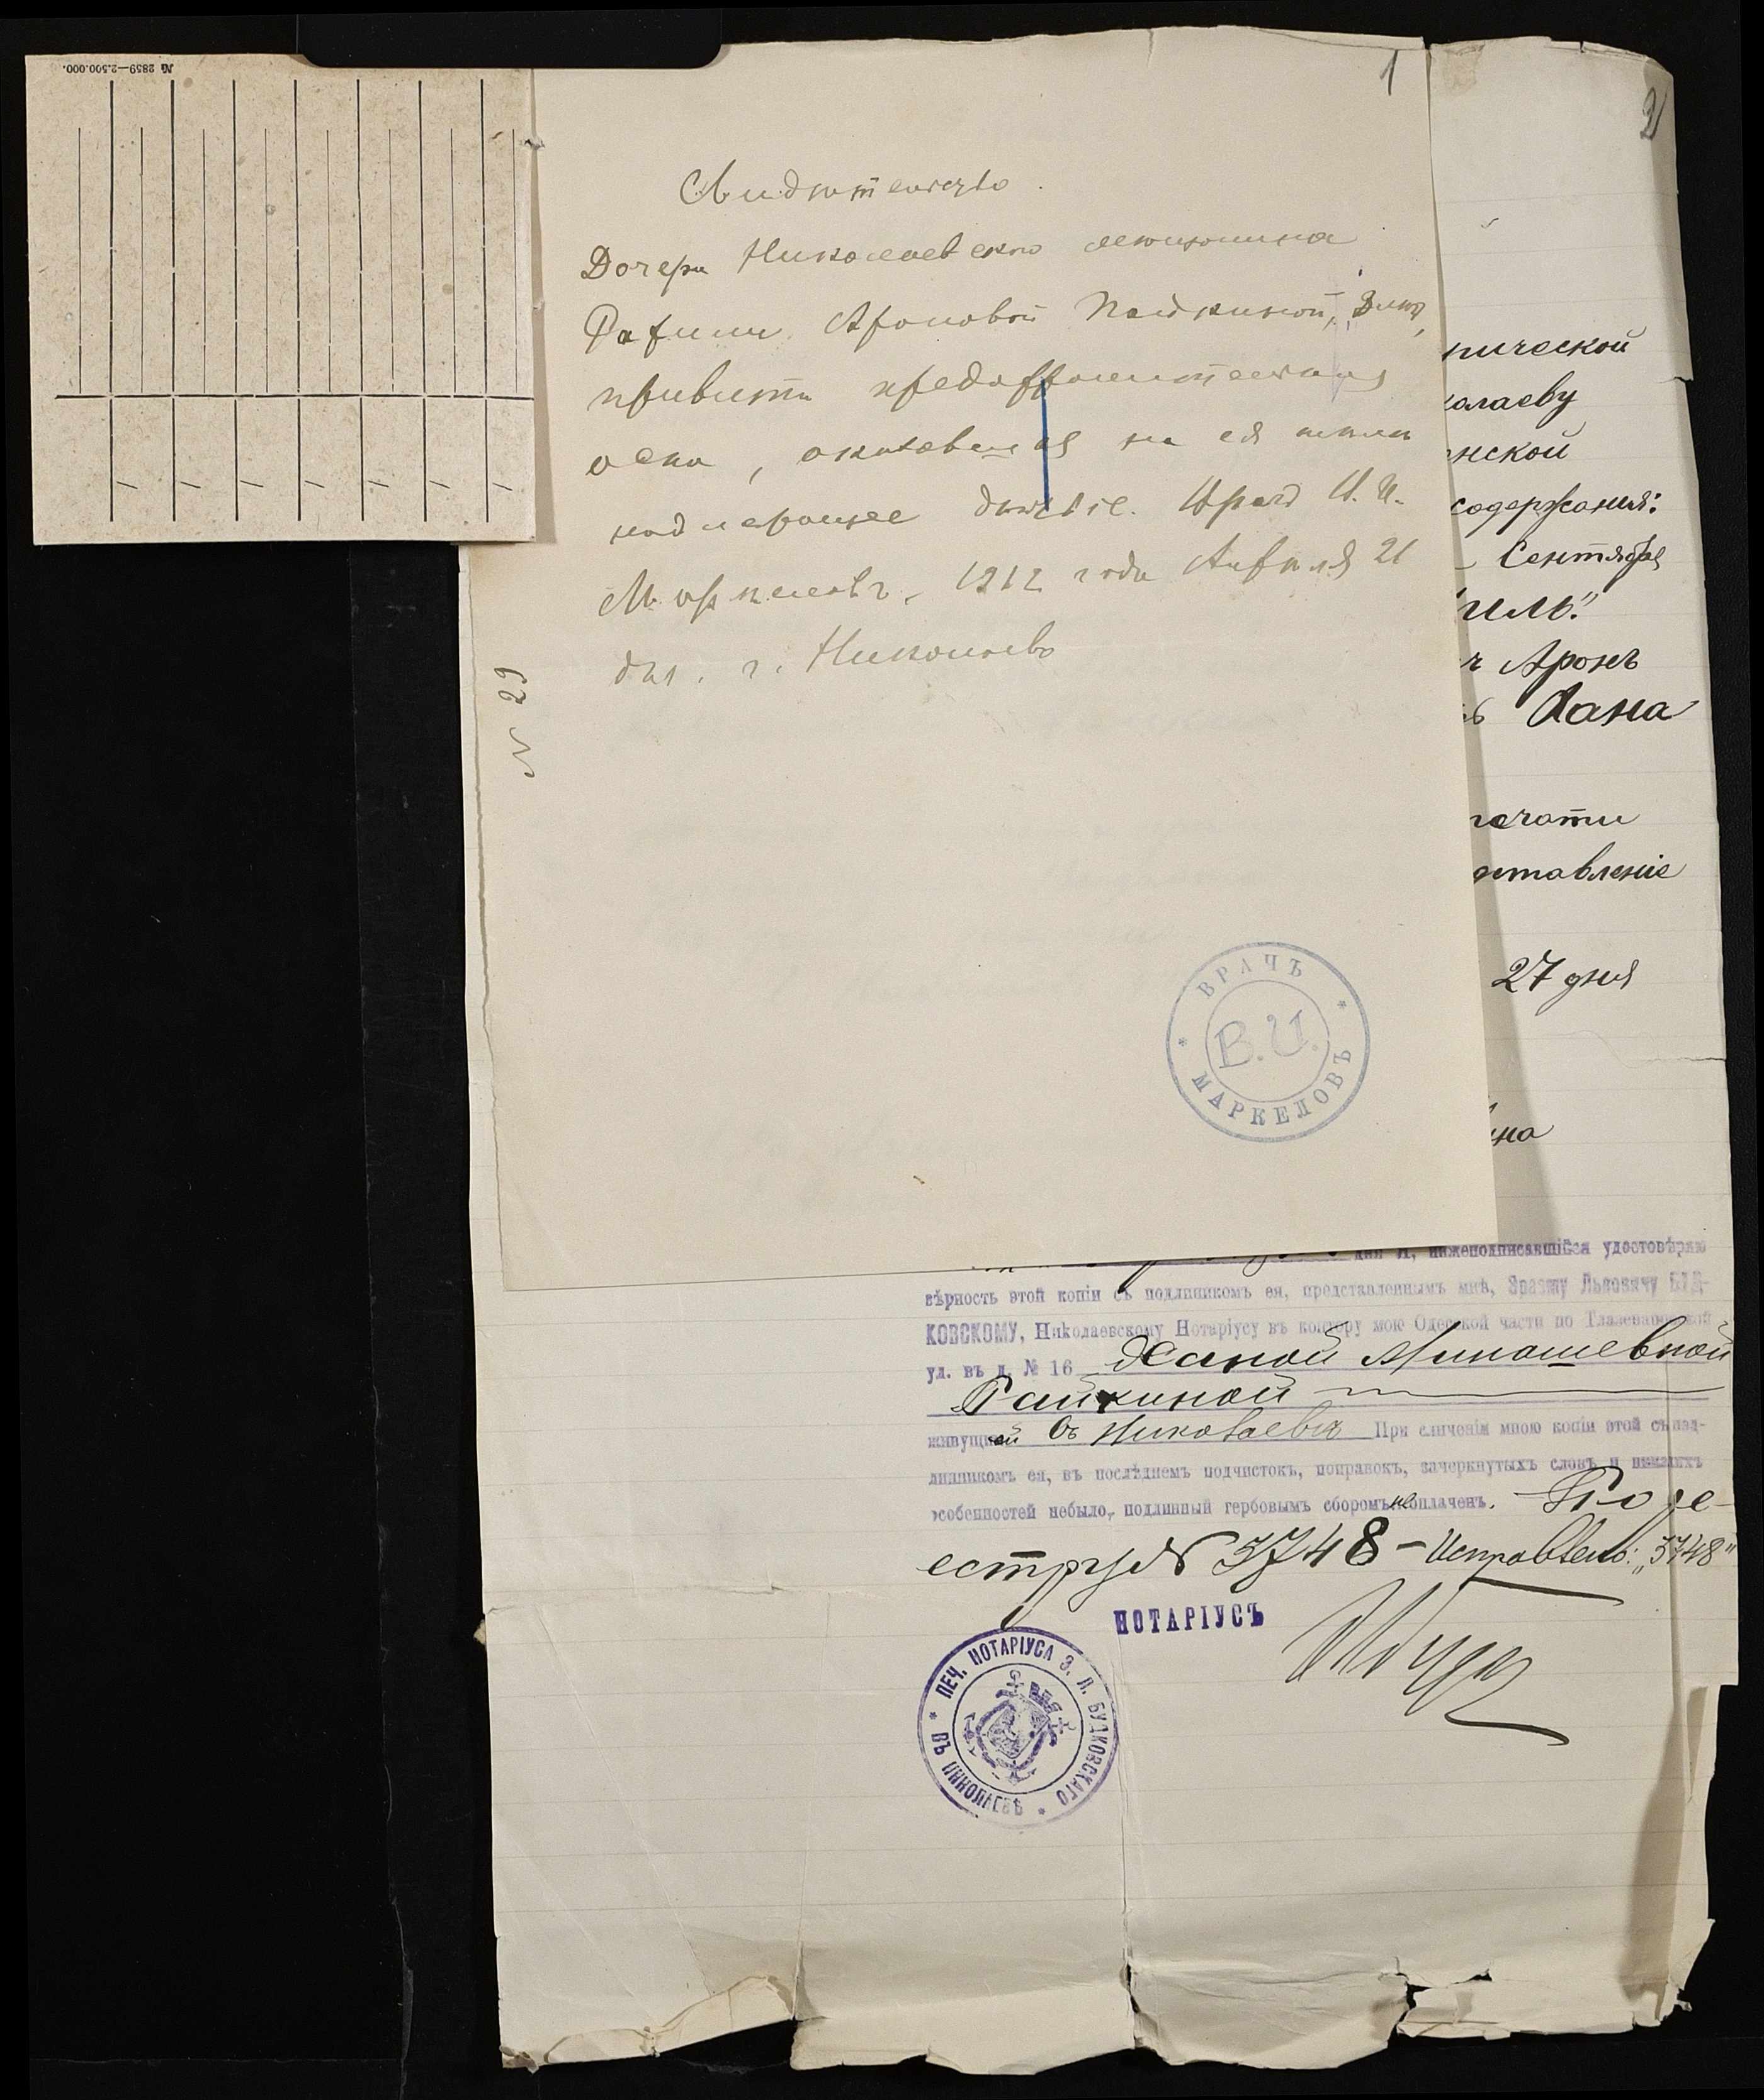 № 2859—2.500.000.
1
Свидѣтельство.
Дочери Николаевскаго мѣщанина
Ароновой
привита предохранительная
оспа, оказавшая на ея тѣлѣ
надлежащее дѣйствіе. Врачъ В. И.
Маркеловъ. 1912 года Апрѣля 21
дня. г. Николаевъ
N 29
ВРАЧЪ
В.И.
МАРКЕЛОВЪ
2
ической
колаеву
нской
содержанія:
Сентября
иль."
Аронъ
Хана
печати
оставленіе
27 дня
ина
дня Я, нижеподписавшійся удостовѣряю
вѣрность этой копіи съ подлинникомъ ея, представленнымъ мнѣ, Эразму Львовичу БУД-
КОВСКОМУ, Николаевскому Нотаріусу въ контору мою Одесской части по
ул. въ д. № 16 Ханой Минашевной
Райхиной
живущей въ Николаевѣ При сличеніи мною копіи этой съ под-
линникомъ ея, въ послѣднемъ подчистокъ, поправокъ, зачеркнутыхъ словъ и никакихъ
особенностей небыло, подлинный гербовымъ сборомъ не оплаченъ. По ре-
естру N 5748 – Исправлено: „5748"
НОТАРІУСЪ
ПЕЧ. НОТАРІУСА Э. Л. БУДКОВСКАГО
ВЪ НИКОЛАЕВѢ